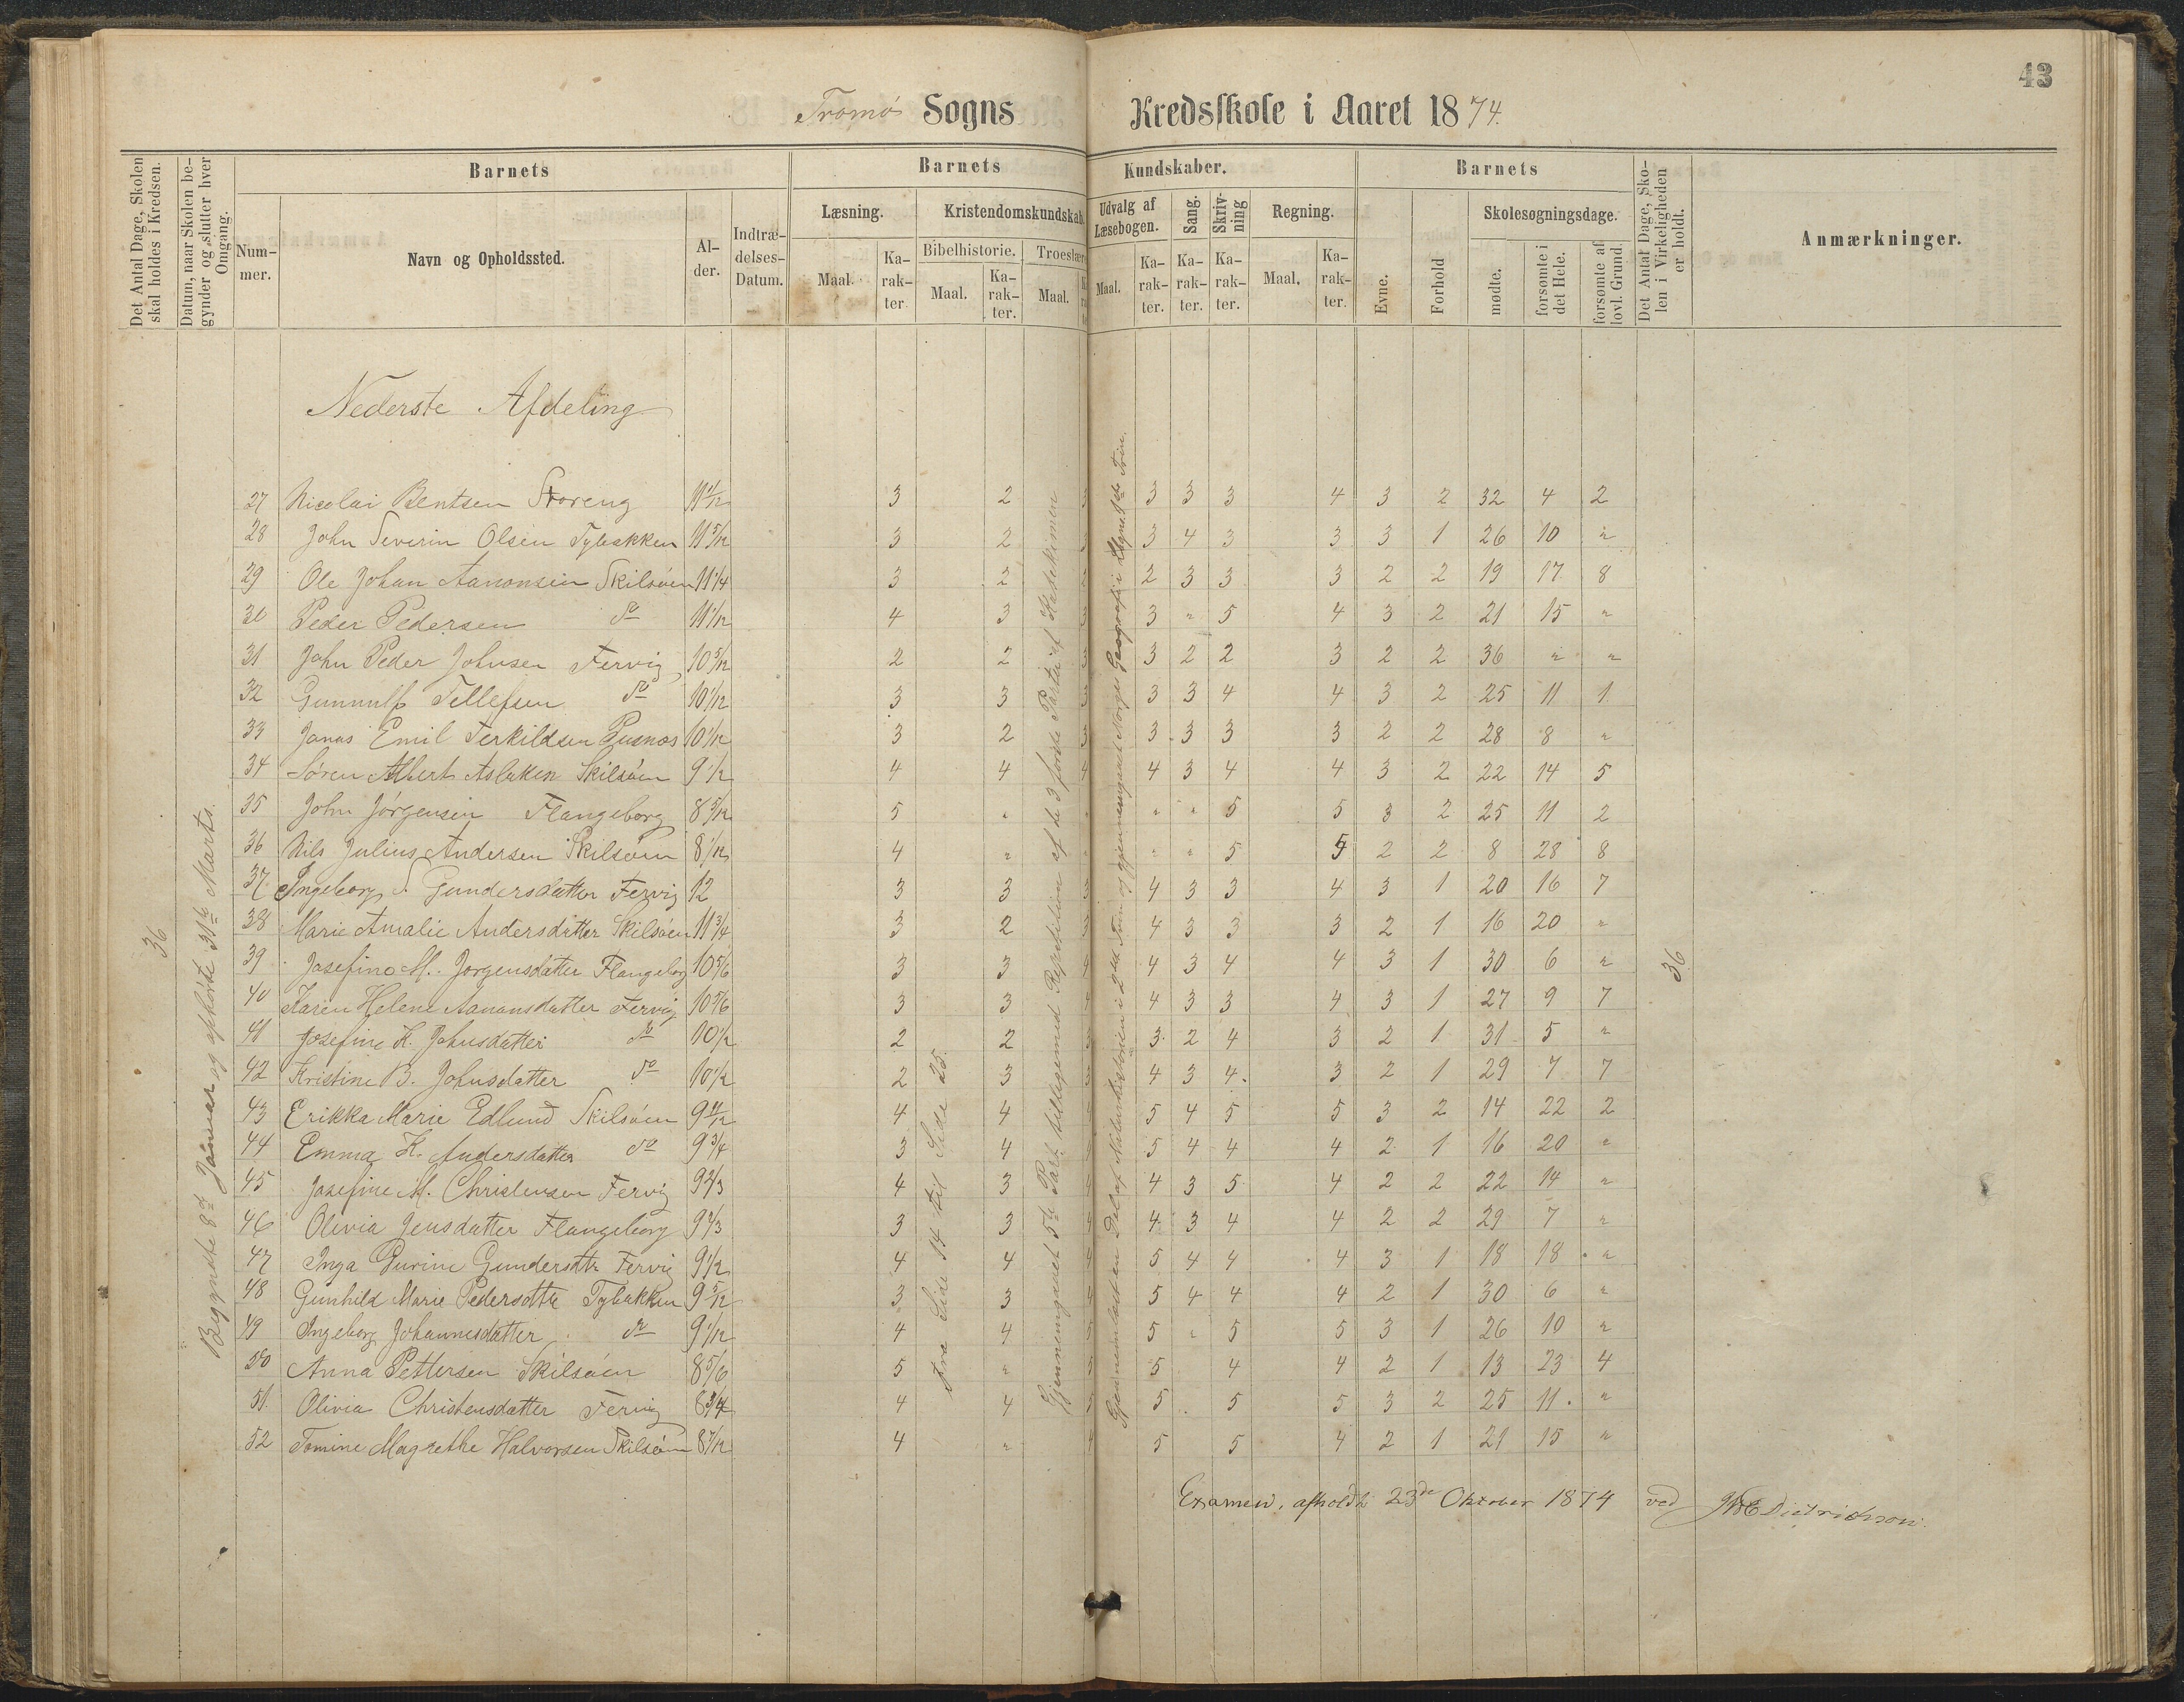 43
Tromø Sogns Kredsskole i Aaret 1874.
Det Antal Dage, Skolen skal holdes i Kredsen.
Datum, naar Skolen begynder og slutter hver Omgang.
Barnets
Nummer.
Navn og Opholdssted.
Alder.
Indtrædelses-Datum.
Barnets Kundskaber.
Læsning.
Maal.
Karakter.
Kristendomskundskab.
Bibelhistorie.
Maal.
Karakter.
Troeslære
Maal.
Udvalg af Læsebogen.
Maal.
Karakter.
Sang.
Karakter.
Skrivning
Karakter.
Regning.
Maal.
Karakter.
Barnets
Evne.
Forhold
Skolesøgningsdage.
mødte.
forsømte i det Hele.
forsømte af lovl. Grund.
Det Antal Dage, Skolen i Virkeligheden er holdt.
Anmærkninger.
Nederste Afdeling
36
Begyndte 8de Januar og ophörte 31te Marts.
Fra Side 14 til Side 25.
Gjennemgaaet 5te Part tilligemed Repetition af de 3 første Parter af Katekismen
36
27 Nicolai Bentsen Storeng 11 1/12 3 2 3 3 3 3 4 3 2 32 4 2
28 John Severin Olsen Tybakken 11 5/12 3 2 3 3 4 3 3 3 1 26 10 "
29 Ole Johan Aanonsen Skilsöen 11 1/4 3 2 2 2 3 3 3 2 2 19 17 8
30 Peder Pedersen do 11 1/12 4 3 3 3 " 5 4 3 2 21 15 "
31 John Peder Johnsen Fervig 10 5/12 2 2 3 3 2 2 3 2 2 36 " "
32 Gunnulf Tellefsen do 10 1/12 3 3 3 3 3 4 4 3 2 25 11 1
33 Jonas Emil Terkildsen Pusnes 10 1/12 3 2 3 3 3 3 3 2 2 28 8 "
34 Sören Albert Aslaksen Skilsöen 9 1/2 4 4 4 4 3 4 4 3 2 22 14 5
35 John Jörgensen Flangeborg 8 5/12 5 " " " " 5 5 3 2 25 11 2
36 Nils Julius Andersen Skilsöen 8 1/12 4 " " " " 5 5 2 2 8 28 8
37 Ingeborg S. Gundersdatter Fervig 12 3 3 3 4 3 3 4 3 1 20 16 7
38 Marie Amalie Andersdatter Skilsöen 11 3/4 3 2 3 4 3 3 3 2 1 16 20 "
39 Josefine M. Jorgensdatter Flangeborg 10 5/6 3 3 4 4 3 4 4 3 1 30 6 "
40 Karen Helene Aanonsdatter Fervig 10 5/6 3 3 4 4 3 3 4 3 1 27 9 7
41 Josefine K. Johnsdatter do 10 1/2 2 2 3 3 2 4 3 2 1 31 5 "
42 Kristine B. Johnsdatter do 10 1/2 2 3 3 4 3 4 3 2 1 29 7 7
43 Erikka Marie Edlund Skilsöen 9 11/12 4 4 4 5 4 5 5 3 2 14 22 2
44 Emma K. Andersdatter do 9 3/4 3 4 5 4 4 4 2 1 16 20 "
45 Josefine M. Christensen Fervig 9 2/3 4 3 4 4 3 5 4 2 2 22 14 "
46 Olivia Jensdatter Flangeborg 9 2/3 3 3 4 4 3 4 4 2 2 29 7 "
47 Inga Gurine Gundersdtr Fervig 9 1/2 4 4 4 5 4 4 4 3 1 18 18 "
48 Gunhild Marie Pedersdttr Tybakken 9 5/12 3 3 4 5 4 4 4 2 1 30 6 "
49 Ingeborg Johannesdatter do 9 1/12 4 4 5 5 " 5 5 3 1 26 10 "
50 Anna Pettersen Skilsöen 8 5/6 5 " 5 5 4 4 2 1 13 23 4
51 Olivia Christensdatter Fervig 8 3/4 4 4 5 5 5 5 3 2 25 11 "
52 Tomine Magrethe Halvorsen Skilsöen 8 7/12 4 " 4 5 5 4 2 1 21 15 "
Examen, afholdt 23de Oktober 1874 ved